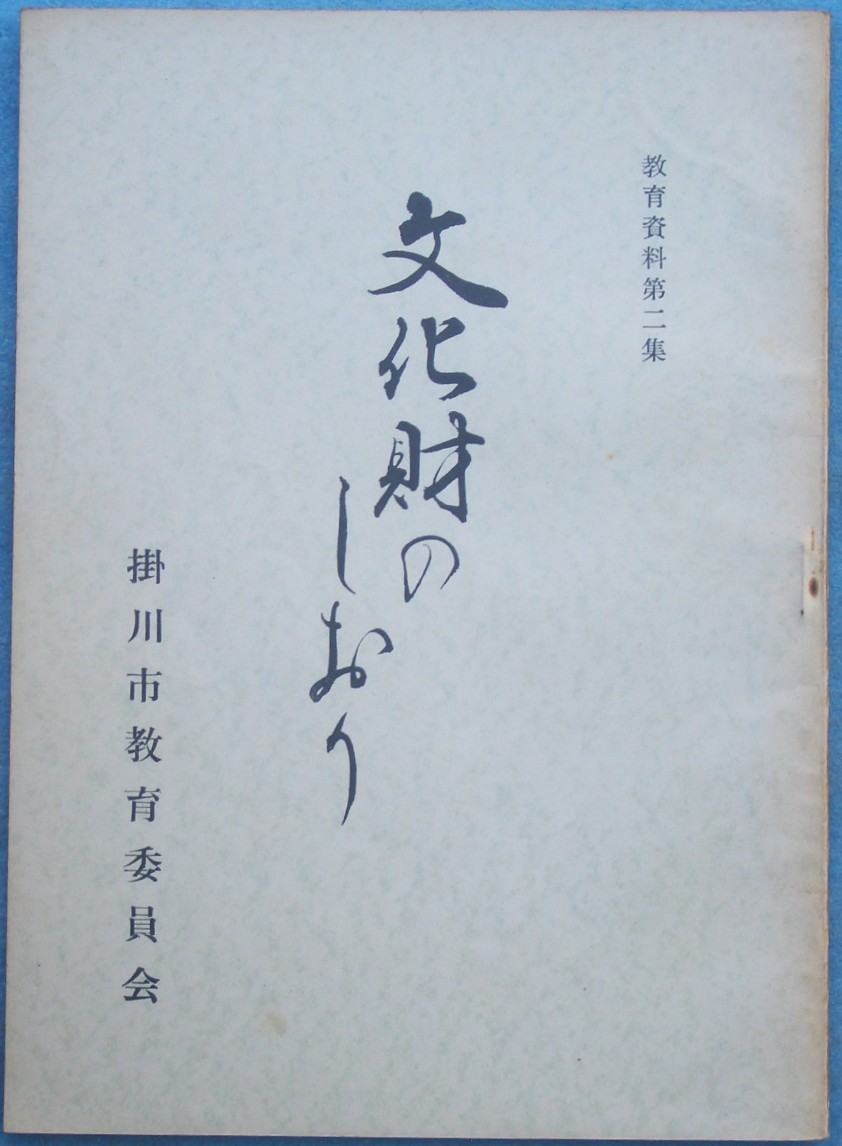 教育資料第二集
文化財の
しおり
掛川市教育委員会